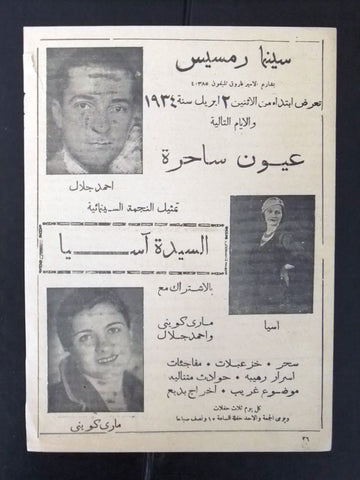 سينما رمسيس
بشارع الامير فاروق تليفون ٤٠٣٨٥
تعرض ابتداء من الاثنين ٢ ابريل سنة ١٩٣٤
والايام التالية
عيون ساحرة
احمد جلال
تمثيل النجمة السينمائية
السيدة آسيا
بالاشتراك مع
ماري كويني
واحمد جلال
اسيا
سحر • خزعبلات • مفاجئات
اسرار رهيبه • حوادث متتاليه
موضوع غريب • اخراج بديع
كل يوم ثلاث حفلات
ويومى الجمعة والاحد حفلة الساعة ١٠ ونصف صباحا
ماري كوينى
٣٦